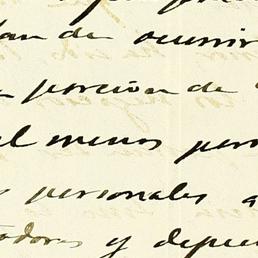 dan de ocurrir
porcion de
al menos para
personales a
tadores y depen